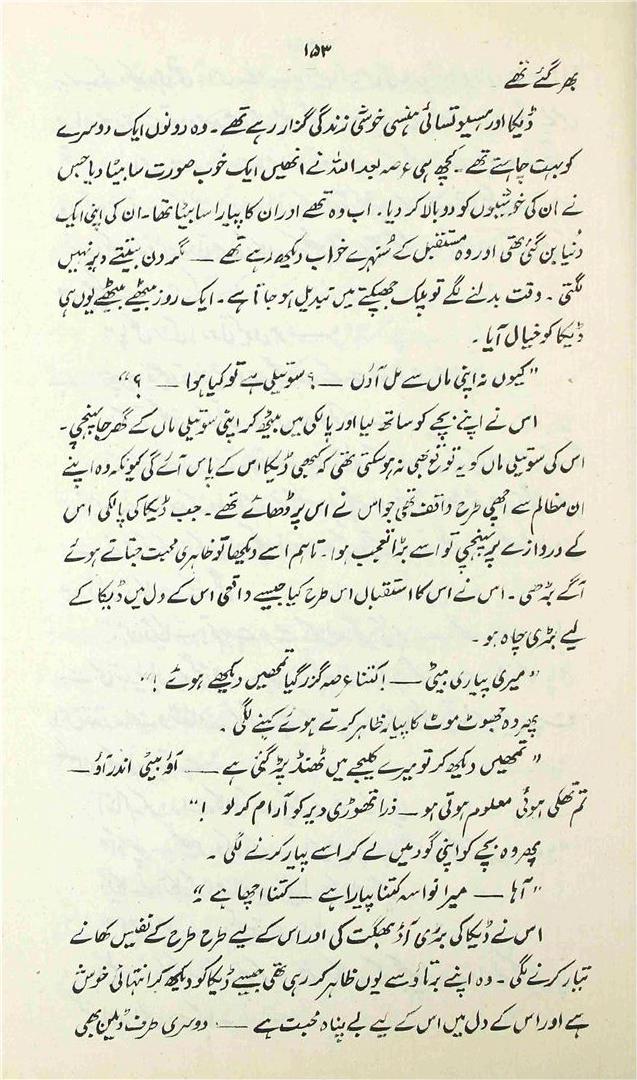 ۱۵۳
بھر گئے تھے
ڈیکا اور مسیلو تسائی ہنسی خوشی زندگی گزار رہے تھے۔ وہ دونوں ایک دوسرے
کو بہت چاہتے تھے۔ کچھ ہی عرصہ بعد اللہ نے انھیں ایک خوب صورت سا بیٹا دیا جس
نے ان کی خوشیوں کو دوبالا کر دیا۔ اب وہ تھے اور ان کا پیارا سا بیٹا تھا۔ ان کی اپنی ایک
دُنیا بن گئی تھی اور وہ مستقبل کے سُنہرے خواب دیکھ رہے تھے — مگر دن بیتتے دیر نہیں
لگتی۔ وقت بدلنے لگے تو پلک جھپکتے میں تبدیل ہو جاتا ہے۔ ایک روز بیٹھے بیٹھے یوں ہی
ڈیکا کو خیال آیا۔
"کیوں نہ اپنی ماں سے مل آؤں —؟ سوتیلی ہے تو کیا ہوا —؟"
اس نے اپنے بچے کو ساتھ لیا اور پالکی میں بیٹھ کر اپنی سوتیلی ماں کے گھر جا پہنچی۔
اس کی سوتیلی ماں کو یہ توقع بھی نہ ہو سکتی تھی کہ کبھی ڈیکا اس کے پاس آئے گی کیونکہ وہ اپنے
ان مظالم سے اچھی طرح واقف تھی جو اس نے اس پر ڈھائے تھے۔ جب ڈیکا کی پالکی اس
کے دروازے پر پہنچی تو اسے بڑا تعجب ہوا۔ تاہم اسے دیکھا تو ظاہری محبت جتاتے ہوئے
آگے بڑھی۔ اس نے اس کا استقبال اس طرح کیا جیسے واقعی اس کے دل میں ڈیکا کے
لیے بڑی چاہ ہو۔
"میری پیاری بیٹی — اِکتنا عرصہ گزر گیا تمھیں دیکھے ہوئے!"
پھر وہ جھوٹ موٹ کا پیار ظاہر کرتے ہوئے کہنے لگی۔
"تمھیں دیکھ کر تو میرے کلیجے میں ٹھنڈ پڑ گئی ہے — آؤ بیٹی اندر آؤ —
تم تھکی ہوئی معلوم ہوتی ہو — ذرا تھوڑی دیر کو آرام کر لو!"
پھر وہ بچے کو اپنی گود میں لے کر اسے پیار کرنے لگی۔
"آہا — میرا نواسہ کتنا پیارا ہے — کتنا اچھا ہے۔"
اس نے ڈیکا کی بڑی آؤ بھگت کی اور اس کے لیے طرح طرح کے نفیس کھانے
تیار کرنے لگی۔ وہ اپنے برتاؤ سے یوں ظاہر کر رہی تھی جیسے ڈیکا کو دیکھ کر انتہائی خوش
ہے اور اس کے دل میں اس کے لیے بے پناہ محبت ہے — دوسری طرف ڈلین بھی